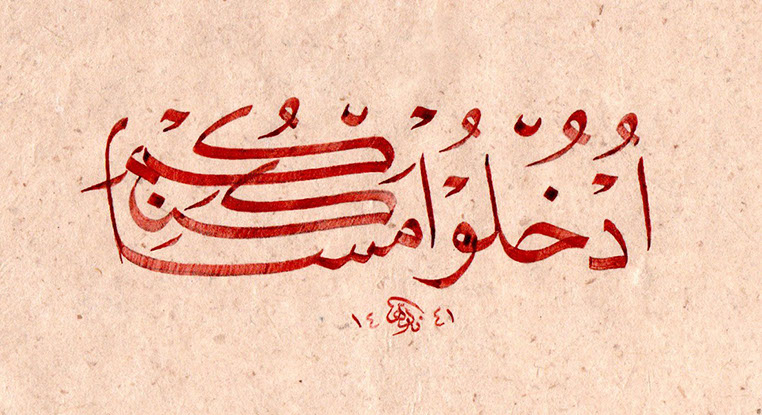 أُدْخُلُوْا مَسَاكِنَكُمْ
١٤ ٤١